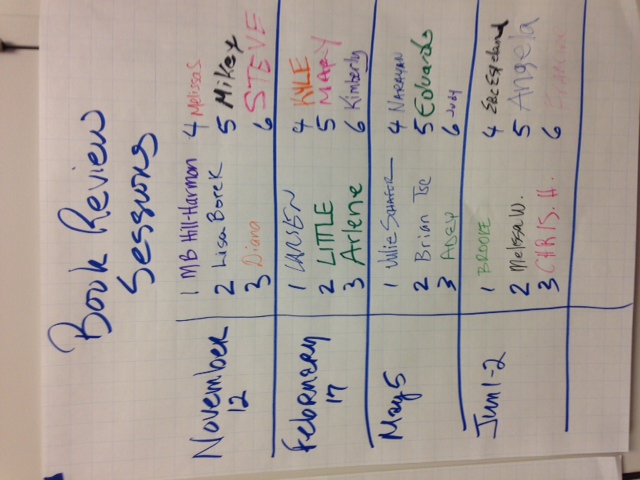 Book Review
Sessions
November
12
1 MB Hill-Harmon
2 Lisa Borek
3 Diana
4 Melissa S
5 Mikey
6 STEVE
February
17
1 LARSEN
2 LITTLE
3 Arlene
4 KYLE
5 MARY
6 Kimberly
May 5
1 Julie SCHAFER
2 Brian Tse
3
4 NARAYAN
5 Eduardo
6 Judy
Jun 1-2
1 BROOKE
2 Melissa W.
3 CHRIS. H.
4
5 Angela
6